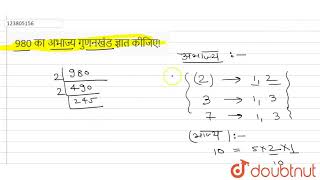 123805156
980 का अभाज्य गुणनखंड ज्ञात कीजिए।
2 980
2 490
245
अभाज्य :-
(2) → 1, 2
3 → 1, 3
7 → 1, 3
(भाज्य) :-
10 = 5×2×1
10
doubtnut